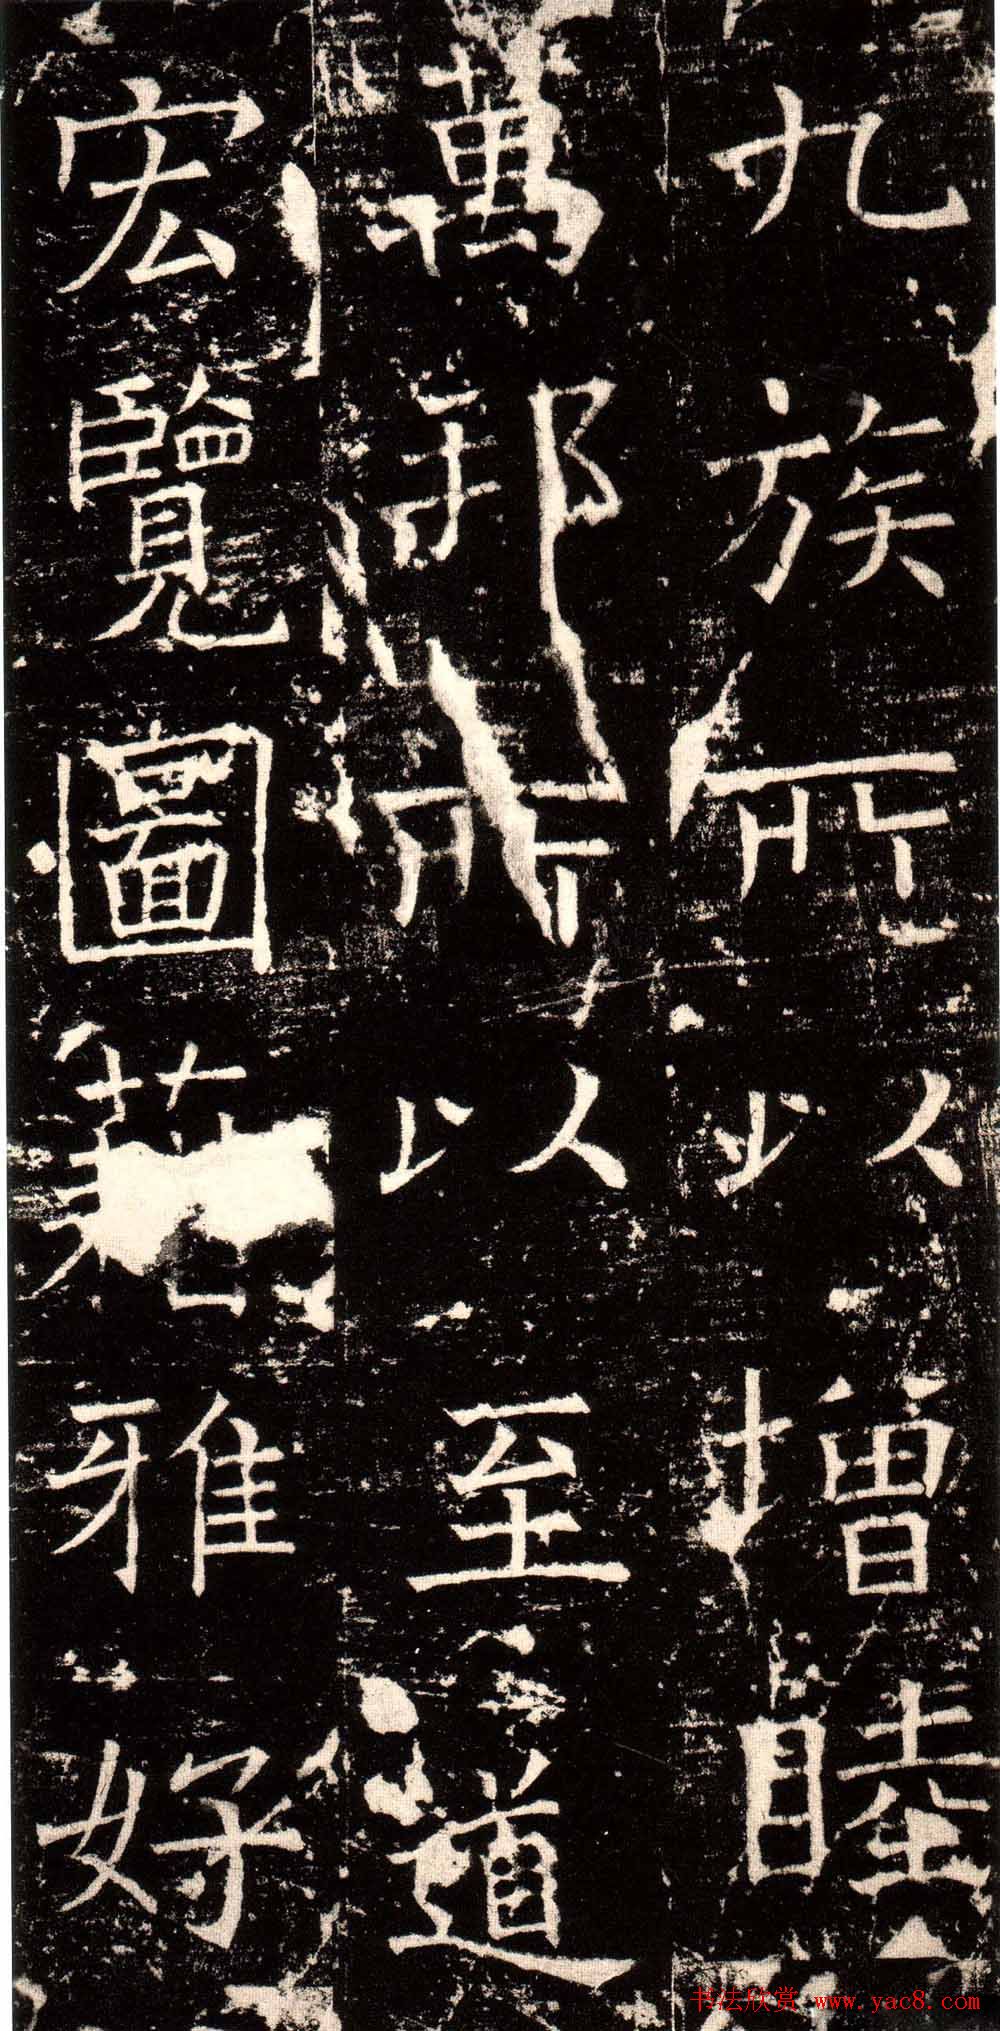 九族所以增睦
萬邦所以至道
宏覽圖藉雅好
书法欣赏 www.yac8.com